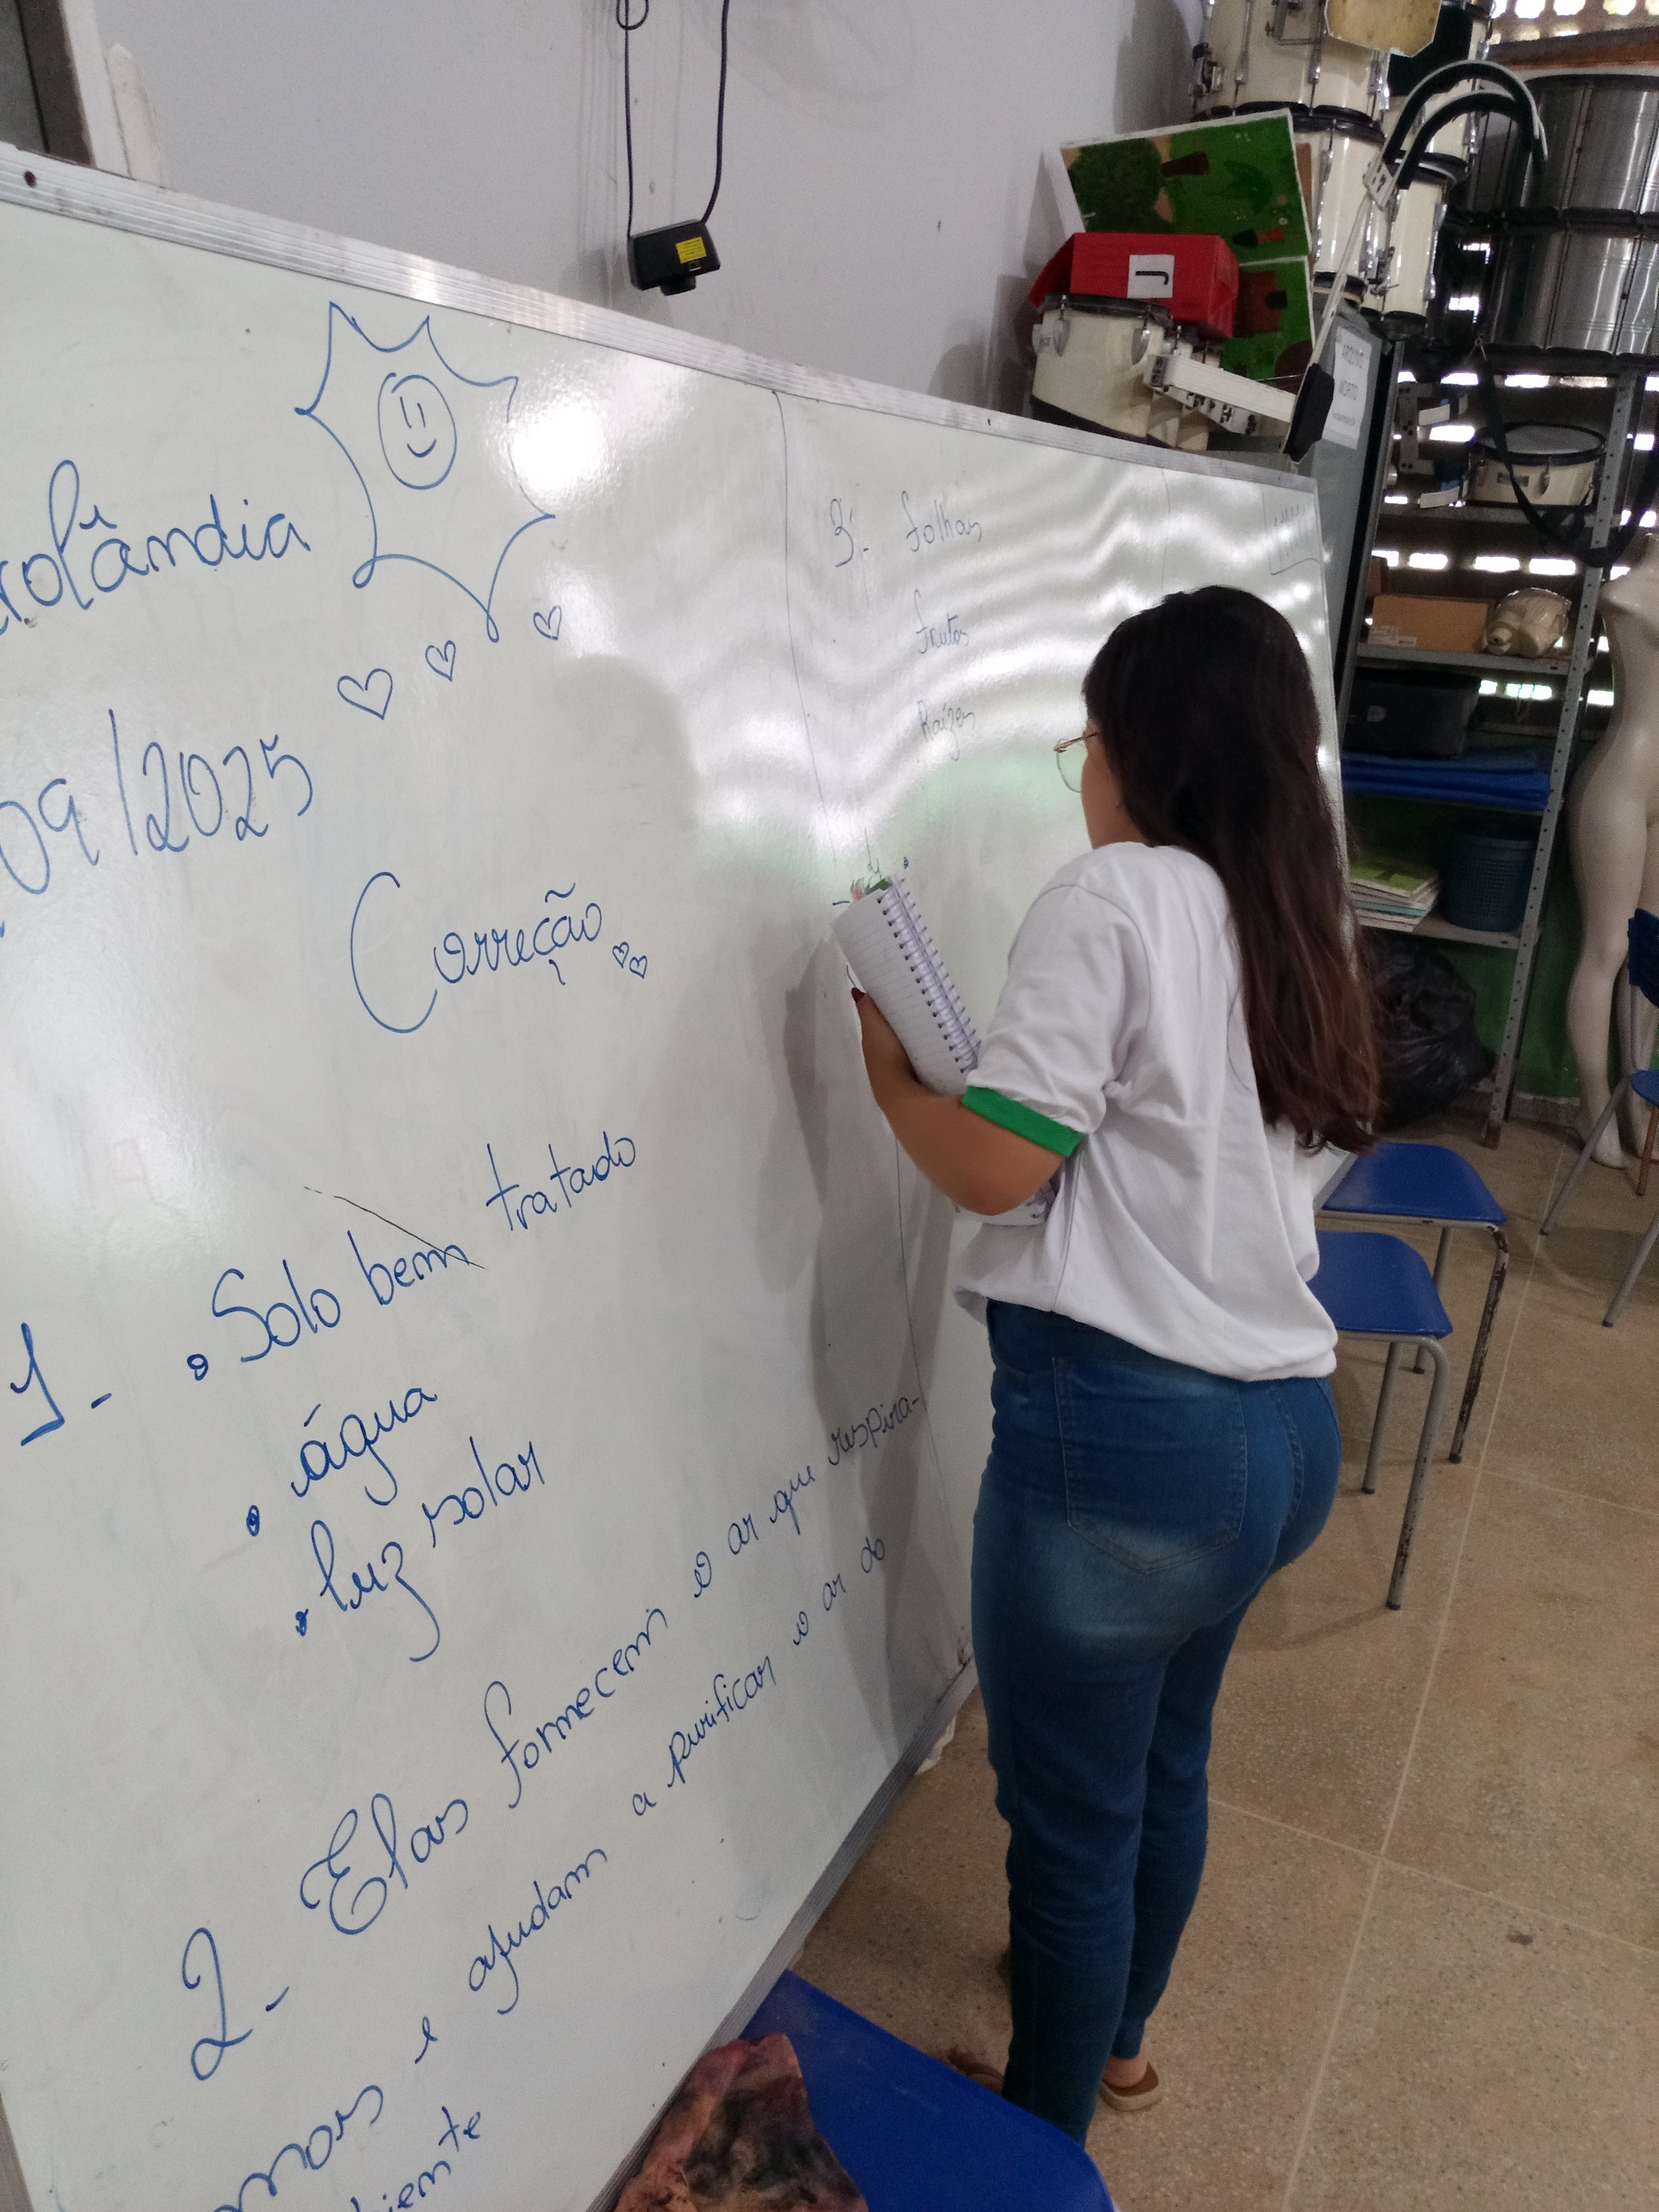 rolândia
09/2025
Correção
1- • Solo bem tratado
• água
• luz solar
2- Elas fornecem o ar que respira-
mos e ajudam a purificar o ar do
biente
3- folhas
frutos
Raízes
J